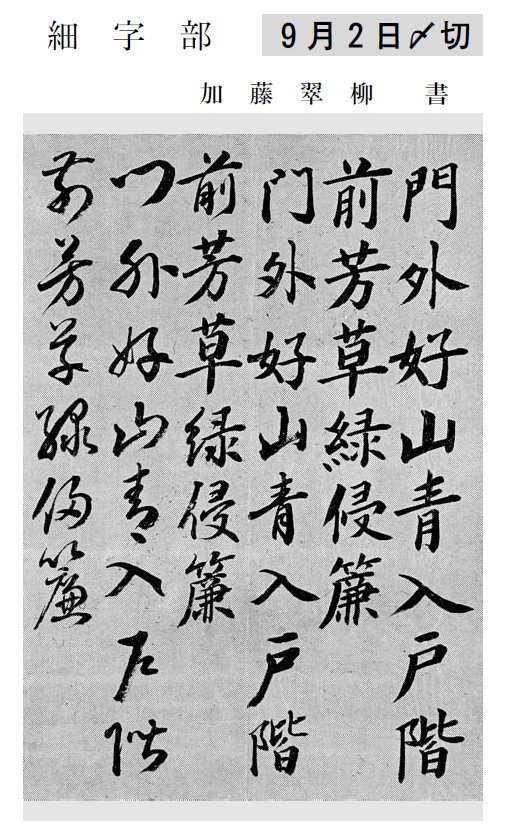 細字部
9月2日〆切
加藤翠柳 書
門外好山青入戸階
前芳草緑侵簾
门外好山青入戸階
前芳草緑侵簾
门外好山青入戸階
前芳草緑侵簾